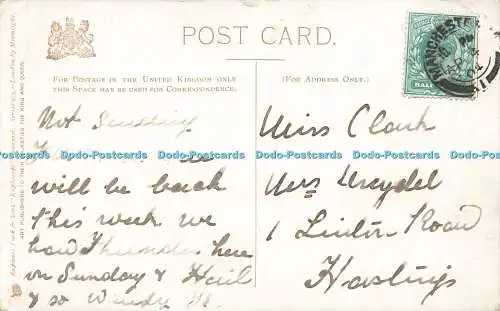 POST CARD.
FOR POSTAGE IN THE UNITED KINGDOM ONLY
THIS SPACE MAY BE USED FOR CORRESPONDENCE.
(FOR ADDRESS ONLY.)
MANCHESTER
HALF
Raphael Tuck & Sons'
ART PUBLISHERS TO THEIR MAJESTIES THE KING AND QUEEN.
Not Sending
will be back
this week we
had Thunder here
on Sunday & Hail
& so Windy
Miss Clark
1 Linton Road
Hastings
Dodo-Postcards Dodo-Postcards Dodo-Postcards Dodo-Postcards Dodo-Postcards